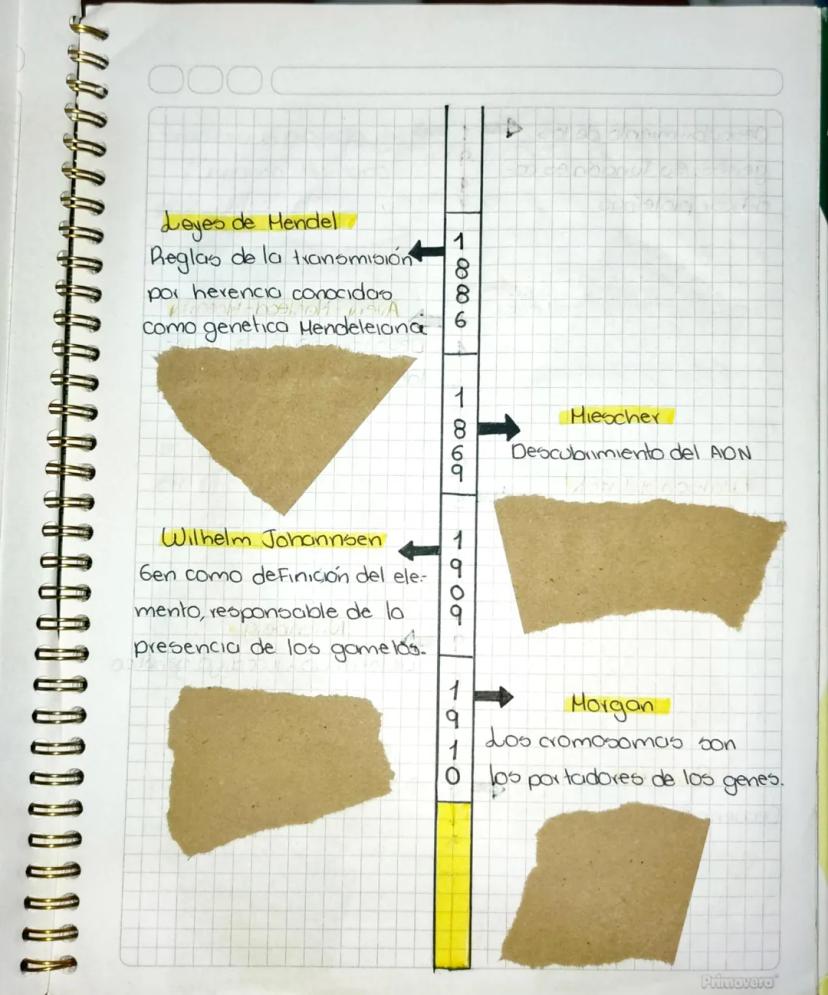 Leyes de Mendel
Reglas de la transmisión
por herencia conocidas
como genetica Mendeleiana
1886
Miescher
Descubrimiento del ADN
1869
Wilhelm Johannsen
Gen como definición del ele-
mento, responsable de la
presencia de los gametos.
1909
Morgan
Los cromosomas son
los portadores de los genes.
1910
Primavera